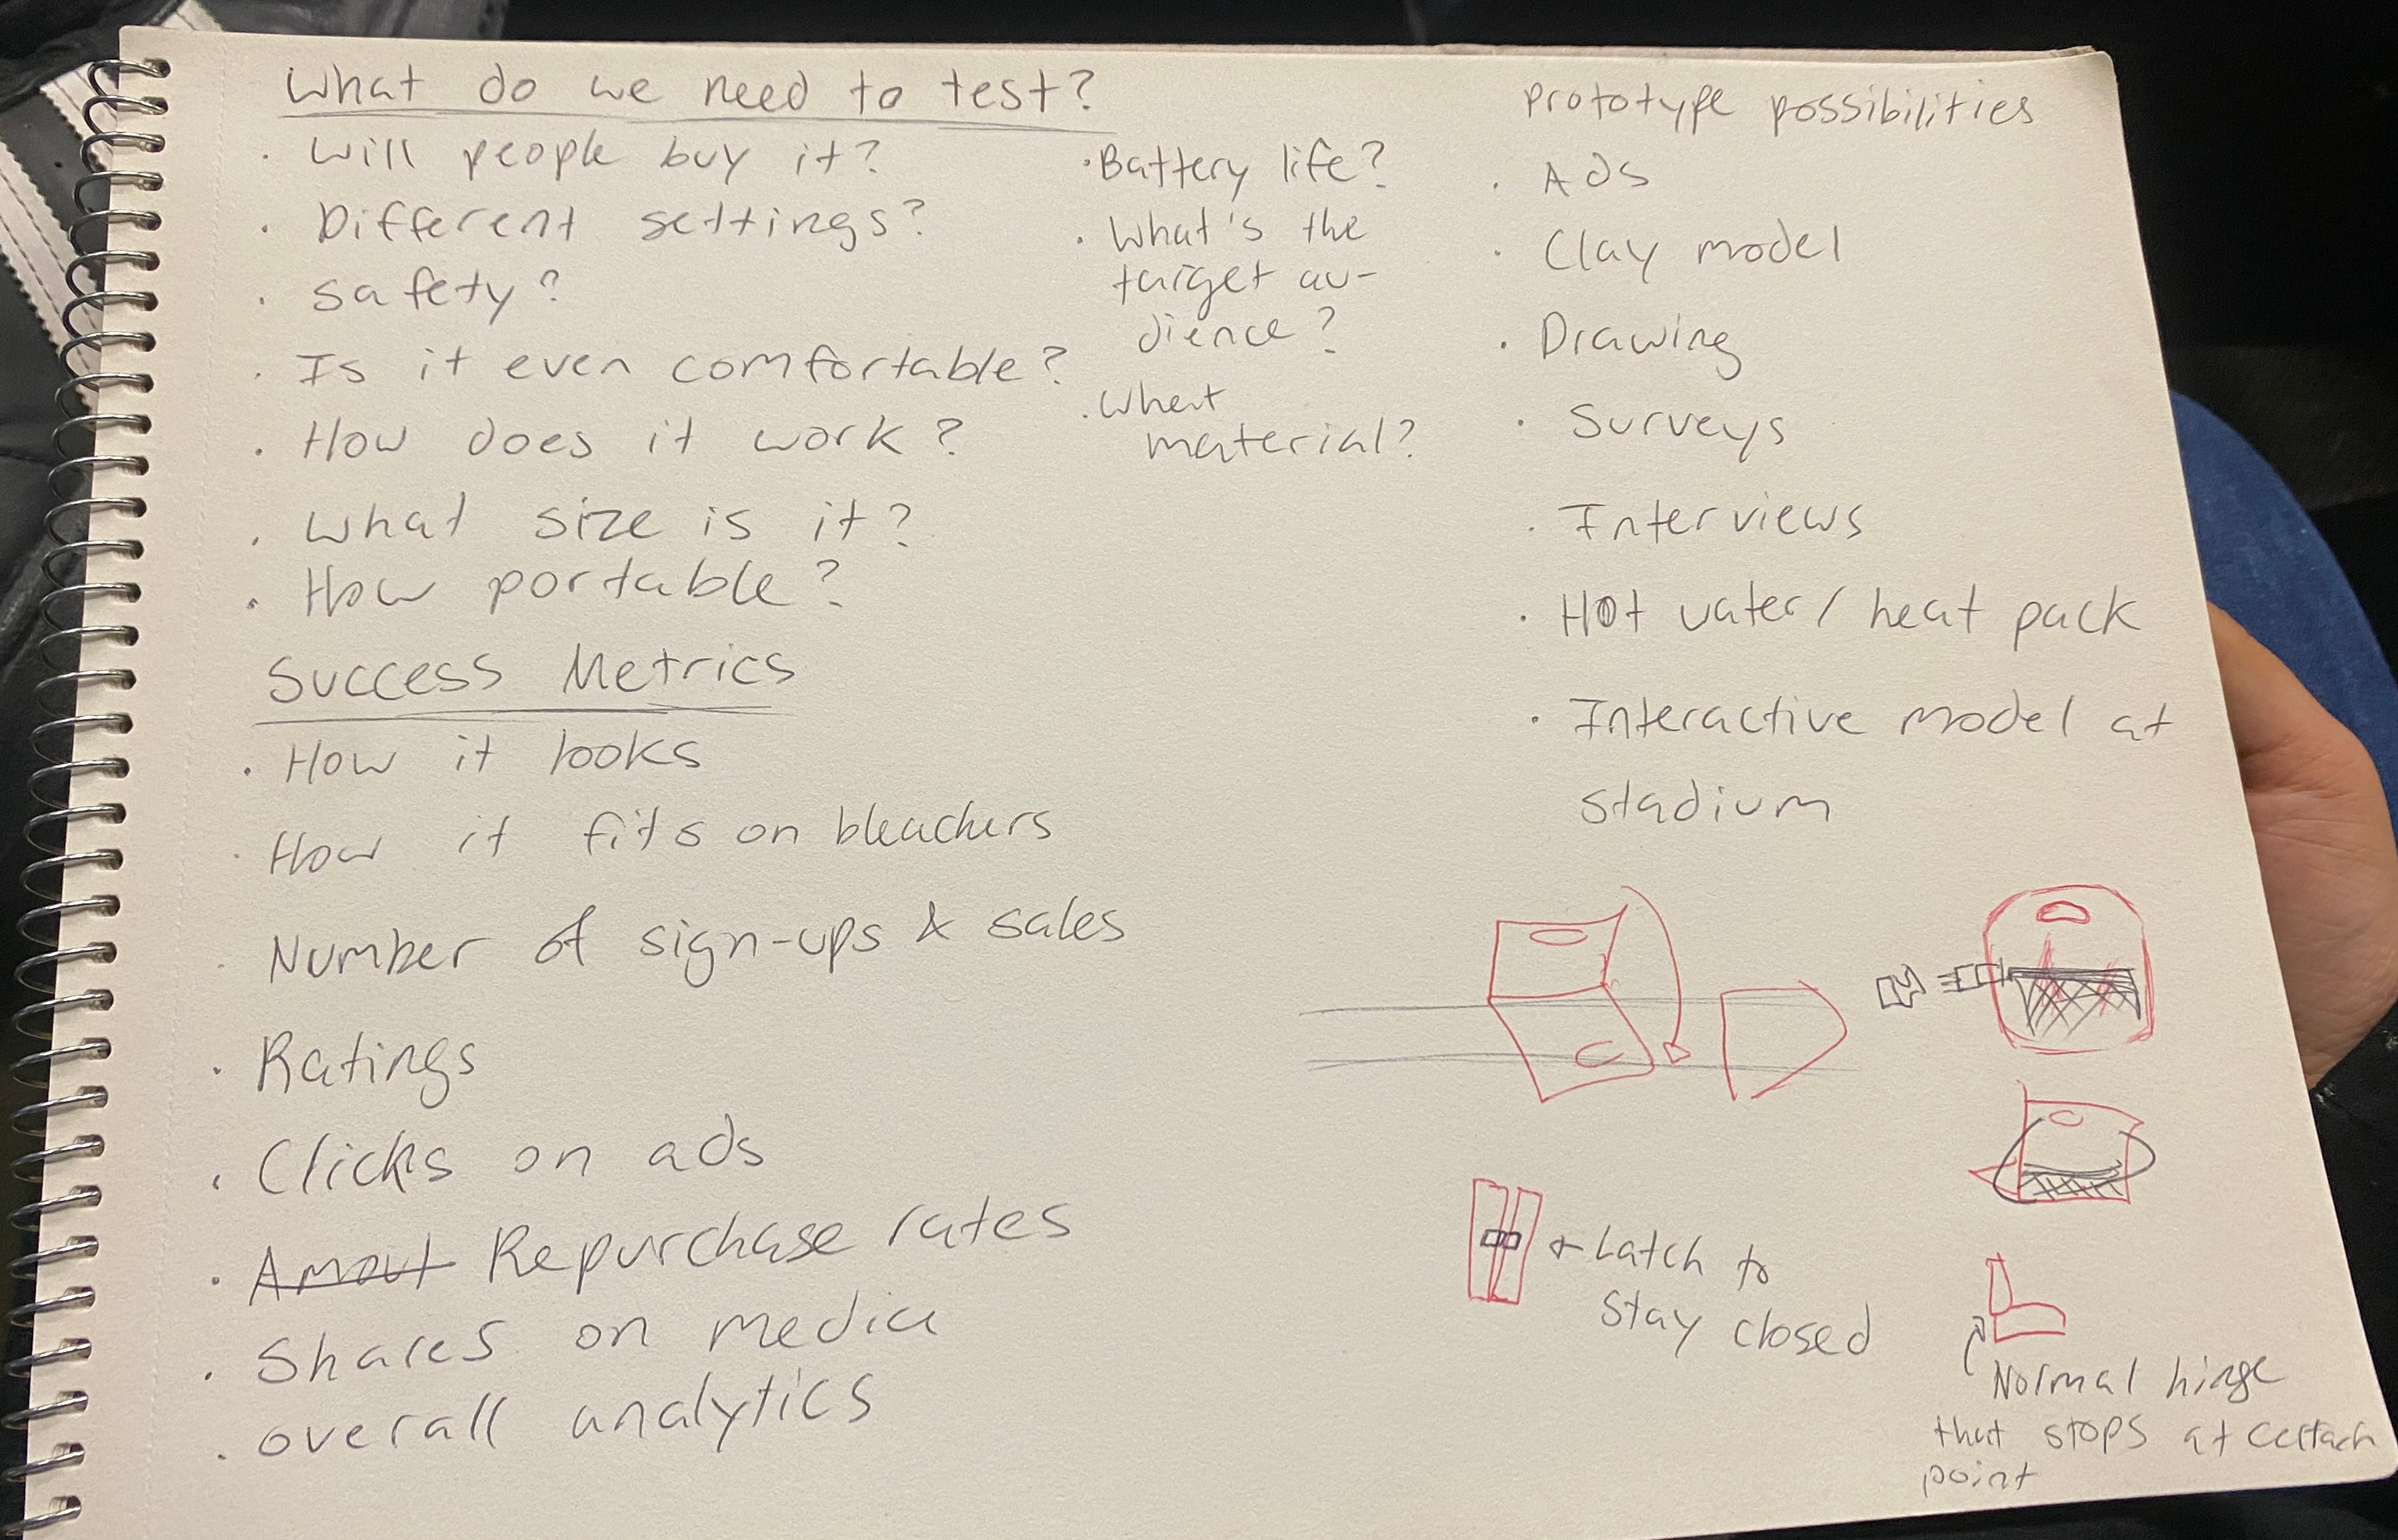 What do we need to test?
· Will people buy it?
· Different settings?
· safety?
· Is it even comfortable?
· How does it work?
· What size is it?
· How portable?
· Battery life?
· What's the
target au-
dience?
· What
material?
Success Metrics
· How it looks
· How it fits on bleachers
· Number of sign-ups & sales
· Ratings
· Clicks on ads
· Amout Repurchase rates
· Shares on media
· overall analytics
Prototype possibilities
· Ads
· Clay model
· Drawing
· Surveys
· Interviews
· Hot water/ heat pack
· Interactive model at
stadium
← Latch to
stay closed
Normal hinge
that stops at certain
point